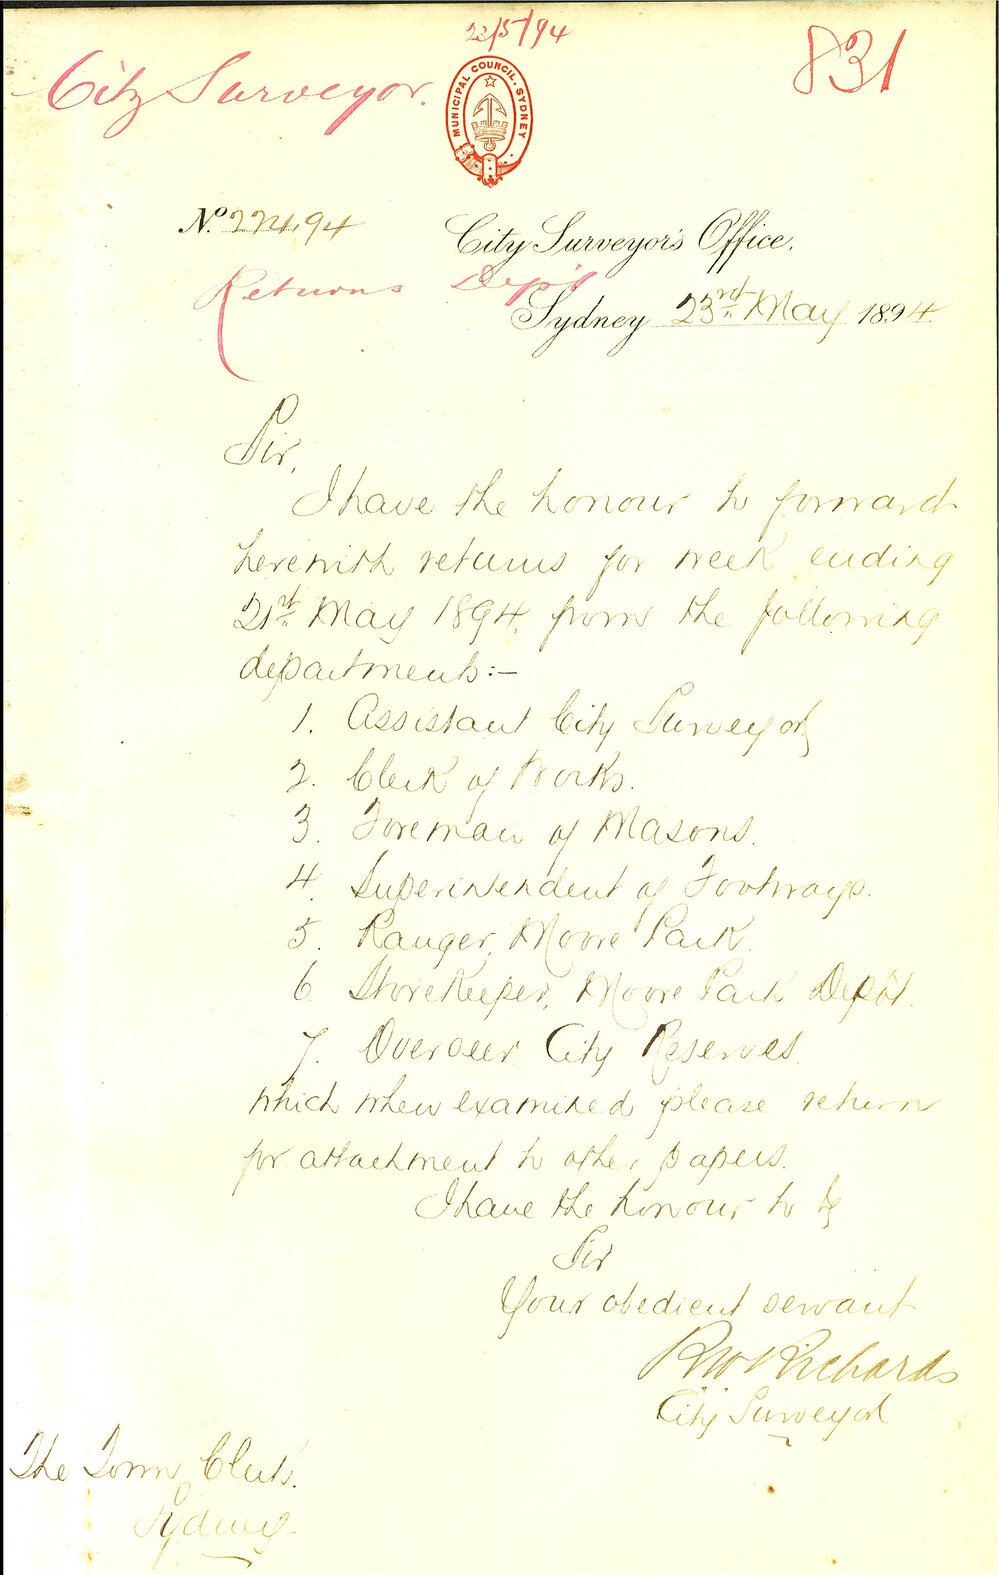 23/5/94
City Surveyor.
831
MUNICIPAL COUNCIL. SYDNEY
No. 224.94
City Surveyor's Office.
Returns Dep's
Sydney 23rd May 1894.
Sir,
I have the honour to forward
herewith returns for week ending
21st May 1894. from the following
departments:-
1. Assistant City Surveyor,
2. Clerk of Works.
3. Foreman of Masons.
4. Superintendent of Footways.
5. Ranger, Moore Park.
6. Storekeeper, Moore Park Depôt.
7. Overseer City Reserves.
which when examined please return
for attachment to other papers.
I have the honour to be
Sir
Your obedient servant
RW Richards
City Surveyor
The Town Clerk.
Sydney